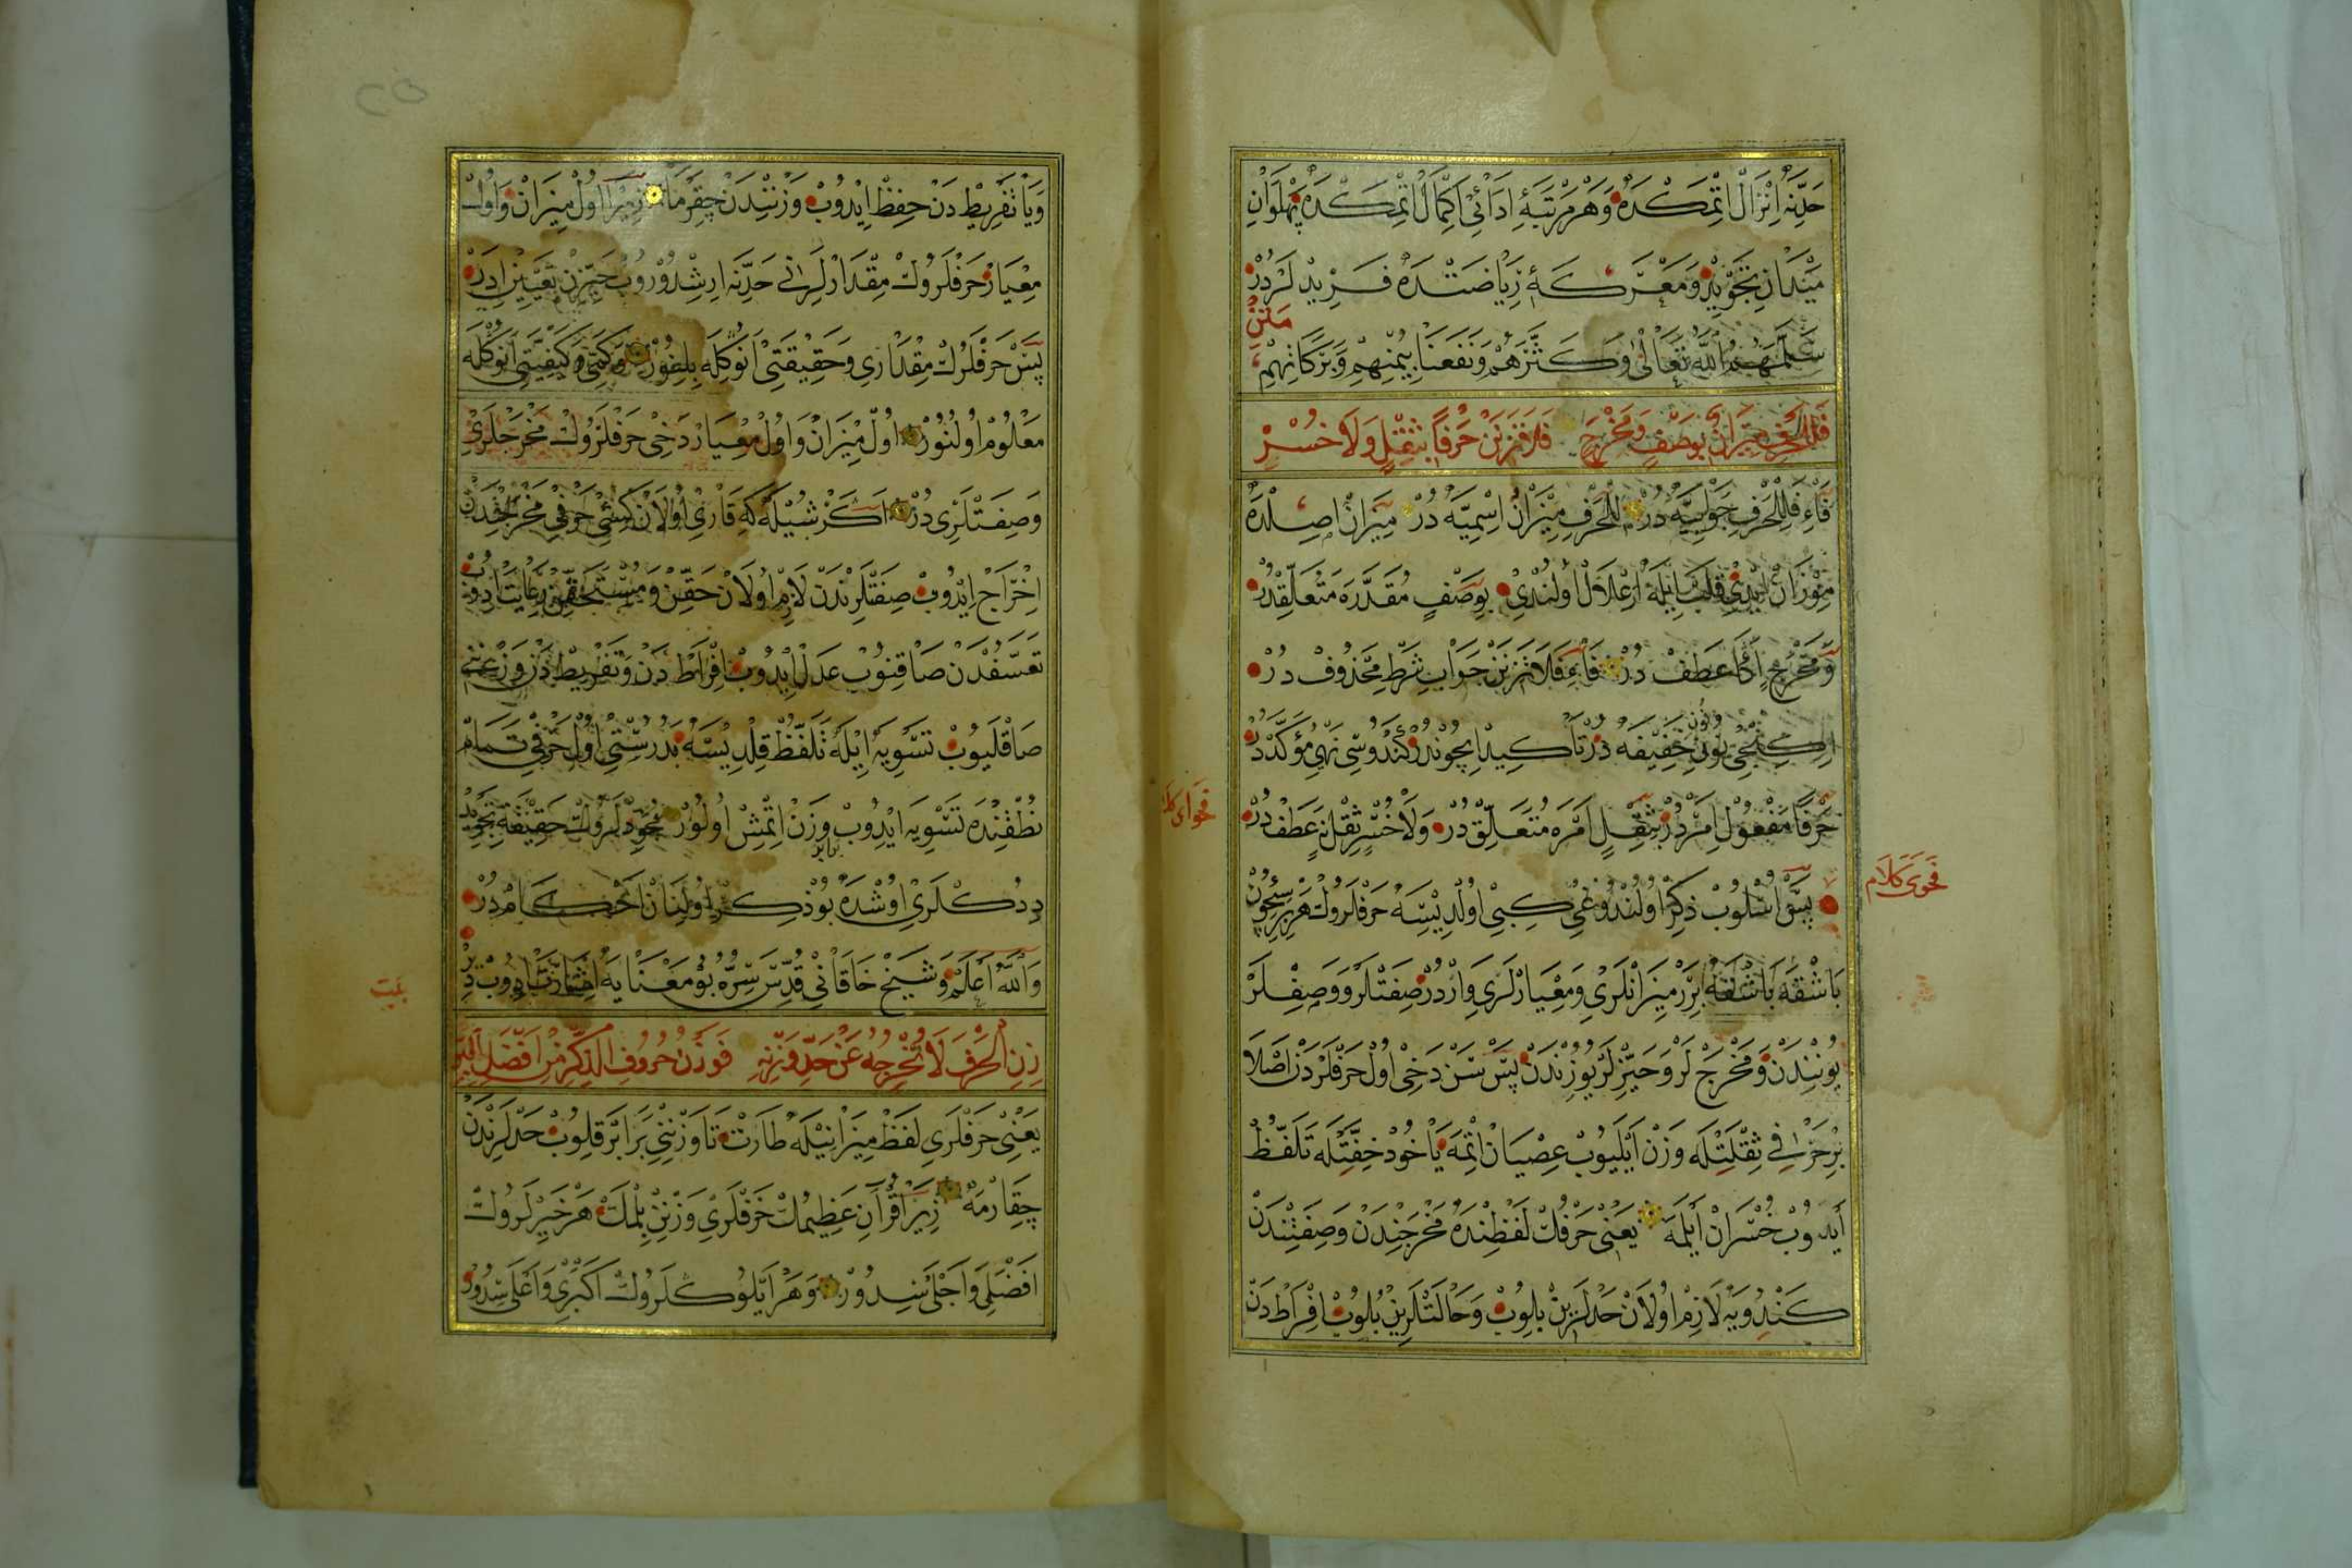 حَدِّنَه اِنْزَالْ اِتْمَكْدَه وَهَرْ مَرْتَبَهِٔ اَدَائِى اِكْمَالْ اِتْمَكْدَه پَهْلَوَانِ
مَيْدَانِ تَجْوِيدْ وَمَعْرَكَهِٔ رِيَاضَتْدَه فَرِيدْ لَرْدُرْ
سَلَّمَهُمُ اللّٰهُ تَعَالٰى وَكَثَّرَهُمْ وَنَفَعَنَا بِيُمْنِهِمْ وَبَرَكَاتِهِمْ
مَتْنْ
فَلِلْحَرْفِ مِيزَانٌ بِوَصْفٍ وَمَخْرَجٍ فَلَا تَزِنَنْ حَرْفًا بِثِقْلٍ وَلَا خُسْرِ
فَاءِ فَلِلْحَرْفِ جَوَابِيَّه دُرْ لِلْحَرْفِ مِيزَانٌ اِسْمِيَّه دُرْ مِيزَانْ اَصِلْدَه
مِوْزَانْ اِيدِى قَلْبِ يَا يِلَه اِعْلَالْ اُولُنْدِى بِوَصْفٍ مُقَدَّرَه مُتَعَلِّقْدُرْ
وَمَخْرَجٍ اَكَا عَطِفْ دُرْ فَاءِ فَلَا تَزِنَنْ جَوَابِ شَرْطِ مَحْذُوفْ دُرْ
اِيكِنْجِى نُونْ خَفِيفَه دُرْ تَاكِيدْ اِيچُونْدُرْ كَنْدُوسِى نَهْىِ مُؤَكَّدْدُرْ
حَرْفًا مَفْعُولْ اَمْرْدُرْ بِثِقْلٍ اَمْرَه مُتَعَلِّقْ دُرْ وَلَا خُسْرِ ثِقْلٍ نَه عَطِفْ دُرْ
فَحْوَى كَلَام
پَسْ اُسْلُوبْ ذِكِرْ اُولُنْدُوغِى كِبِى اُولْدِيسَه حَرْفْلَرُوكْ هَرْ بِرِيسِيچُونْ
بَاشْقَه بَاشْقَه بِرَرْ مِيزَانْلَرِى وَمِعْيَارْلَرِى وَارْدُرْ صِفَتْلَرْ وَوَصِفْلَرْ
يُونِنْدَنْ وَمَخْرَجْ لَرْ وَحَيِّزْلَرْ يُوزِنْدَنْ پَسْ سَنْ دَخِى اُولْ حَرْفْلَرْدَنْ اَصْلَا
بِرْ حَرْفِى ثِقْلَتِلَه وَزْنْ اَيْلَيُوبْ عِصْيَانْ اِتْمَه يَاخُودْ خِفَّتِلَه تَلَفُّظْ
اَيْدُوبْ خُسْرَانْ اَيْلَمَه يَعْنِى حَرْفُكْ لَفْظِنْدَه مَخْرَجِنْدَنْ وَصِفَتِنْدَنْ
كَنْدُويَه لَازِمْ اُولَانْ حَدْلَرِينْ بِلُوبْ وَحَالَتْلَرِينْ بُلُوبْ اِفْرَاطْدَنْ
وَيَا تَفْرِيطْ دَنْ حِفِظْ اِيدُوبْ وَزْنِنْدَنْ چِقَرْمَا زِيرَا اُولْ مِيزَانْ وَاُولْ
مِعْيَارْ حَرْفْلَرُوكْ مِقْدَارْلَرِنِى حَدِّنَه اِرِشْدُورُوبْ حَيِّزِنْ تَعْيِينْ اِدَرْ
پَسْ حَرْفْلَرُكْ مِقْدَارِى وَحَقِيقَتِى اَنُوكْلَه بِلِنُورْ وَكَمِّيَّتِى وَكَيْفِيَّتِى اَنُوكْلَه
مَعْلُومْ اُولُنُورْ اُولْ مِيزَانْ وَاُولْ مِعْيَارْ دَخِى حَرْفْلَرُوكْ مَخْرَجْلَرِى
وَصِفَتْلَرِى دُرْ اَكَرْ شُيْلَه كِه قَارِى اُولَانْ كِشِى حَرْفِى مَخْرَجِنْدَنْ
اِخْرَاجْ اِيدُوبْ صِفَتْلَرِنْدَنْ لَازِمْ اُولَانْ حَقِّنْ وَمُسْتَحَقِّنْ رِعَايَتْ اِدُوبْ
تَعَسُّفْدَنْ صَاقِنُوبْ عَدِلْ اِيدُوبْ اِفْرَاطْ دَنْ وَتَفْرِيطْ دَنْ وَزْنِنِى
صَاقْلَيُوبْ تَسْوِيَه اِيلَه تَلَفُّظْ قِلْدِيسَه بَدُرُسْتِى اُولْ حَرْفِى تَمَامْ
نُطْقِنْدَه تَسْوِيَه اِيدُوبْ وَزِنْ اِتْمِشْ اُولُورْ مُجَوِّدْلَرُوكْ حَقِيقَتِ تَجْوِيدْ
دِدُكْلَرِى اُوشْدَه بُو ذِكِرْ اُولِنَانْ اَحْكَامْ دُرْ
وَاللّٰهُ اَعْلَمْ وَشَيْخْ خَاقَانِى قُدِّسَ سِرُّهُ بُو مَعْنَايَه اِشَارَتْ اِدُوبْ دِرْ
بَيْت
زِنِ الْحَرْفَ لَا تُخْرِجْهُ عَنْ حَدِّ وَزْنِهِ فَوَزْنُ حُرُوفِ الذِّكْرِ مِنْ اَفْضَلِ الْبِرِّ
يَعْنِى حَرْفْلَرِى لَفِظْ مِيزَانِيلَه طَارْتْ تَا وَزْنِنِى بَرَابَرْ قِلُوبْ حَدْلَرِنْدَنْ
چِقَارْمَه زِيرَا قُرْآنِ عَظِيمُكْ حَرْفْلَرِى وَزْنِنْ بِلْمَكْ هَرْ خَيْرْلَرُوكْ
اَفْضَلِى وَاَجْلَى سِدُورْ وَهَرْ اَيُلُوكْلَرُوكْ اَكْبَرِى وَاَعْلَى سِدُورْ